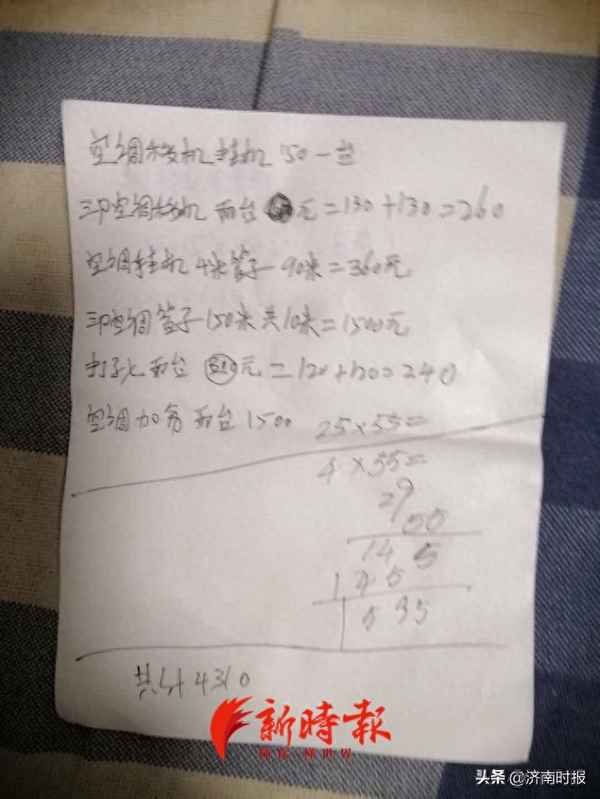 空调移机挂机 150一台
三P空调移机 两台 元=130+130=260
空调挂机 4米管子一90米=360元
三P空调管子一150米共10米=1500元
打孔两台 元=120+120=240
空调加氟 两台 1500
25×55=
4×55=
29
55
145
145
1595
共计 4310
新時報
头条 @济南时报